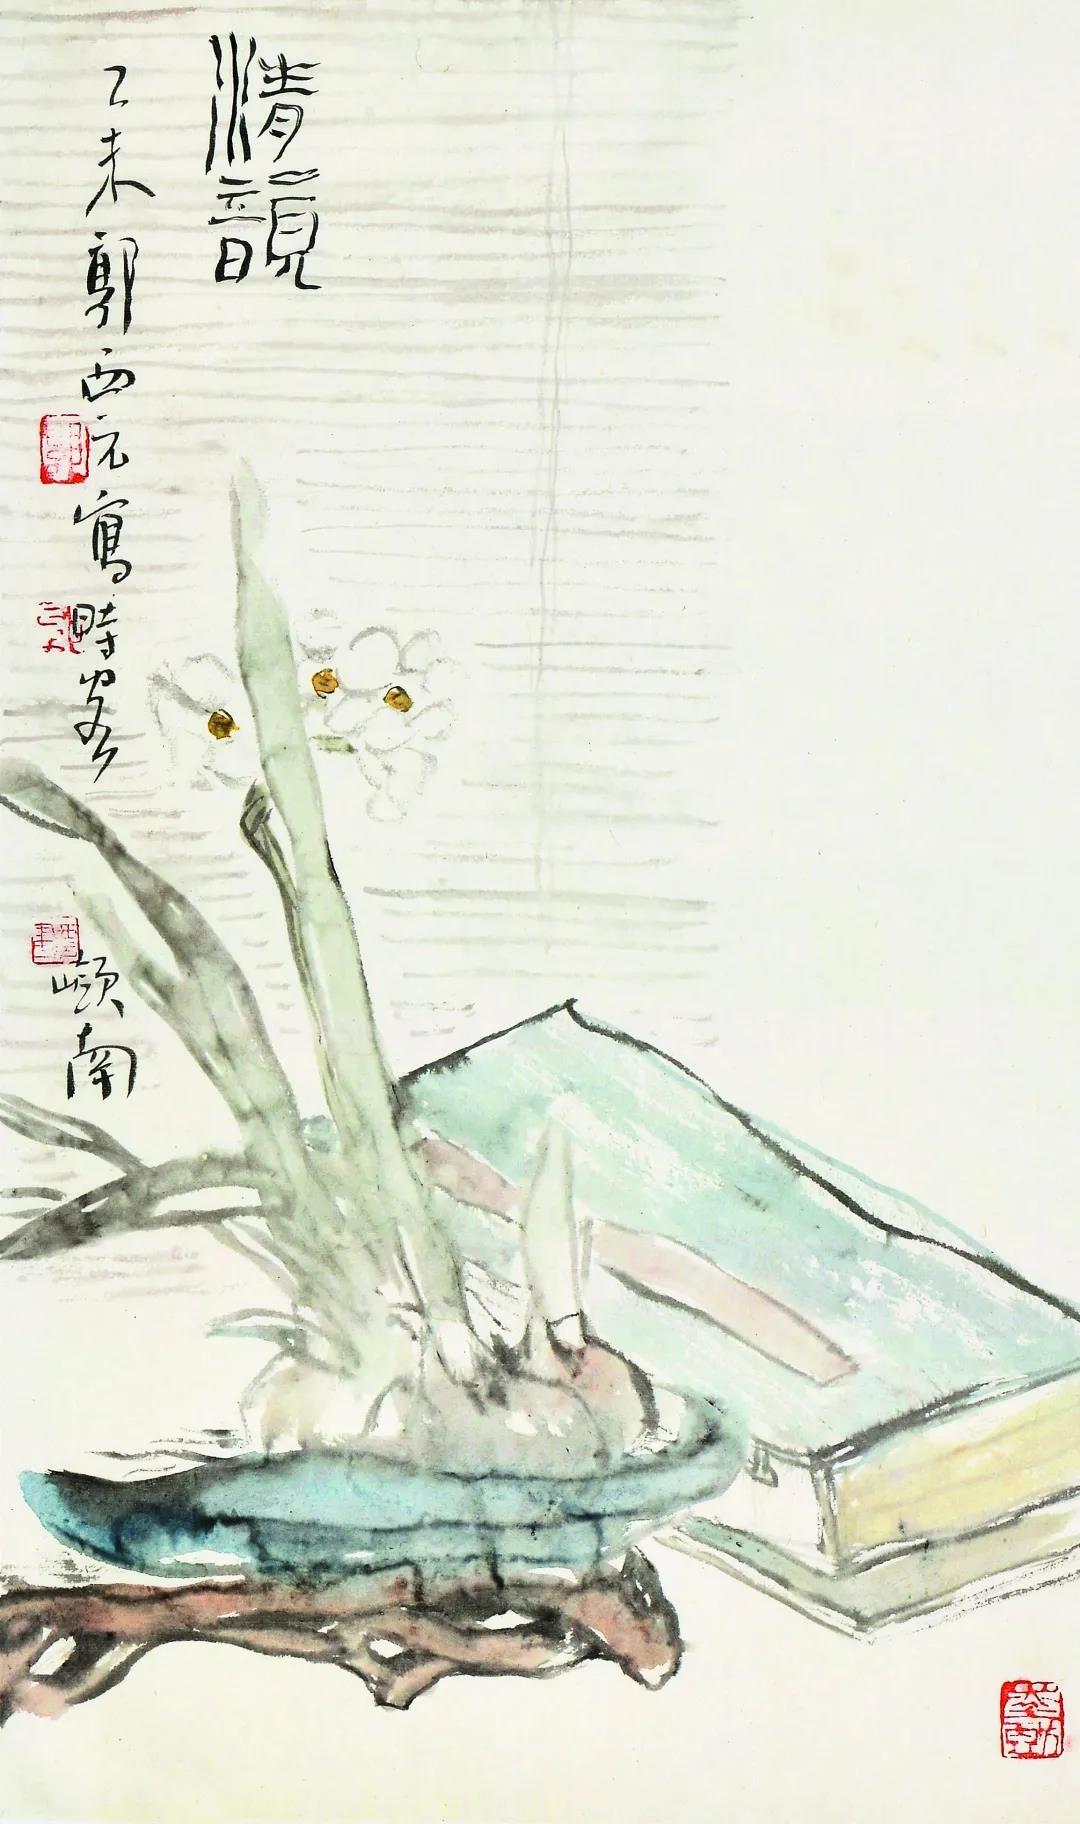 清韻
乙未郭西元寫時客嶺南